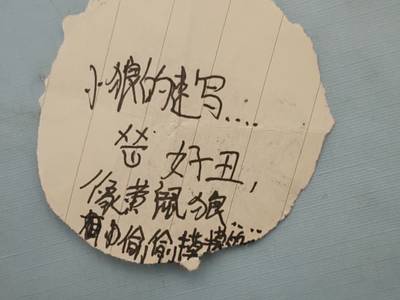 小狼的速写....
好丑,
像黄鼠狼
偷偷摸摸的...